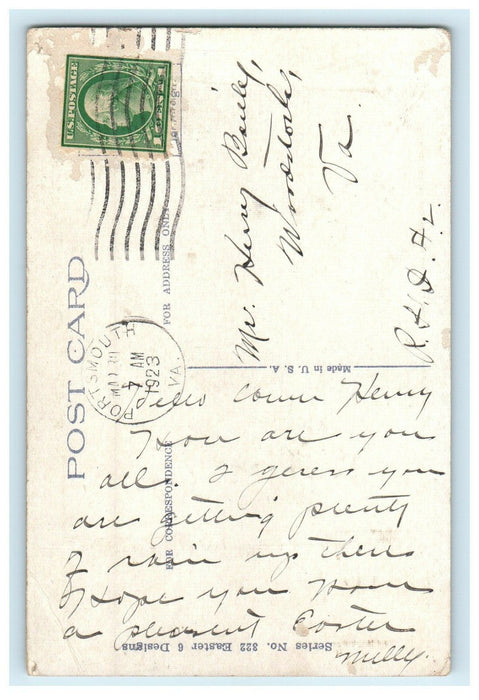 U.S. POSTAGE
1 CENT 1
POST CARD
PORTSMOUTH
MAR 30
7 AM
1923
VA.
FOR ADDRESS ONLY
Mr. Henry Bailey,
Woodstock,
Va.
R.F.D. #2
Made in U. S. A.
FOR CORRESPONDENCE
Henry
How are you
all. I guess you
are getting plenty
of rain up there
Hope you
a pleasent Easter
Milly.
Series No. 322 Easter 6 Designs